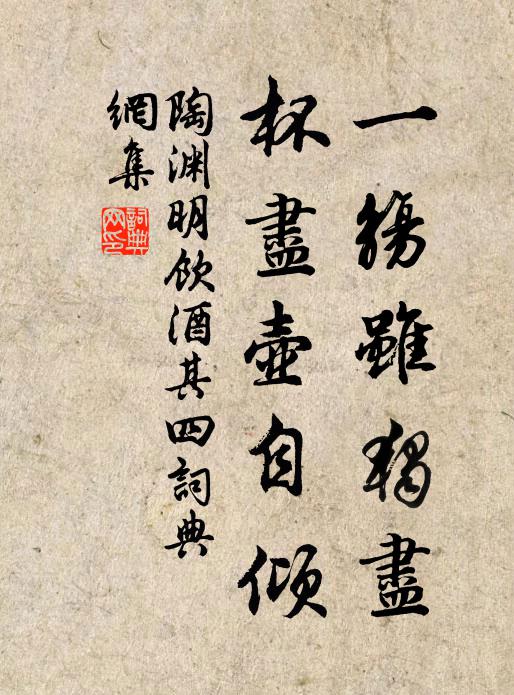 一觴雖獨盡
杯盡壺自傾
陶淵明飲酒其四詞典
網集
詞典網印